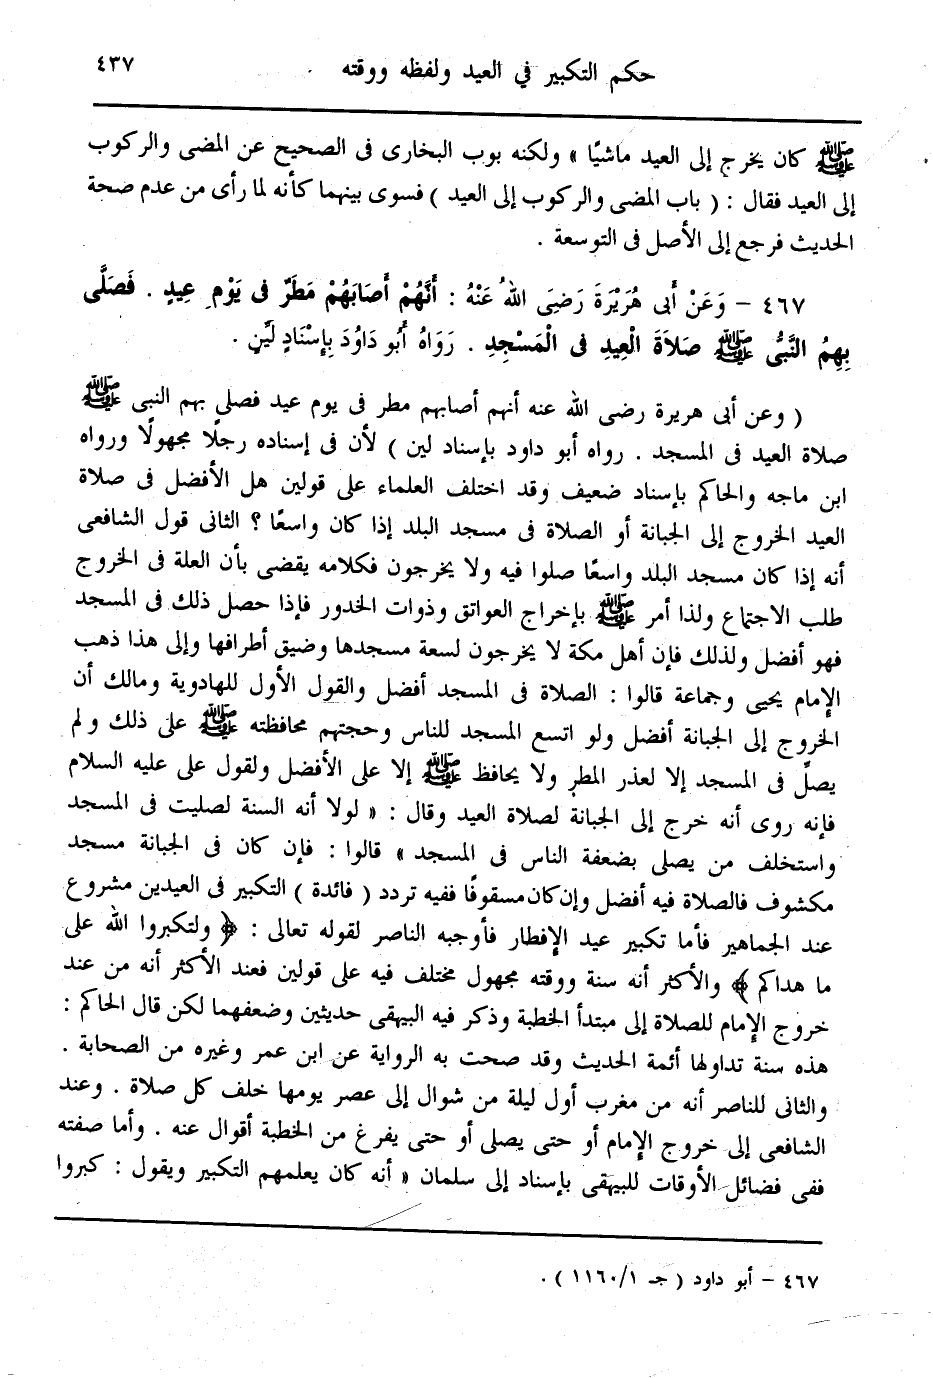 حكم التكبير في العيد ولفظه ووقته ٤٣٧
ﷺ كان يخرج إلى العيد ماشيًا » ولكنه بوب البخارى فى الصحيح عن المضى والركوب
إلى العيد فقال : ( باب المضى والركوب إلى العيد ) فسوى بينهما كأنه لما رأى من عدم صحة
الحديث فرجع إلى الأصل فى التوسعة .
٤٦٧ – وَعَنْ أَبى هُرَيْرَةَ رَضِىَ اللهُ عَنْهُ : أَنَّهُمْ أَصَابَهُمْ مَطَرٌ فى يَوْمِ عِيدٍ . فَصَلَّى
بِهِمُ النَّبىُّ ﷺ صَلَاةَ الْعِيدِ فى الْمَسْجِدِ . رَوَاهُ أَبُو دَاوُدَ بِإِسْنَادٍ لَيِّنٍ .
( وعن أبى هريرة رضى الله عنه أنهم أصابهم مطر فى يوم عيد فصلى بهم النبى ﷺ
صلاة العيد فى المسجد . رواه أبو داود بإسناد لين ) لأن فى إسناده رجلًا مجهولًا ورواه
ابن ماجه والحاكم بإسناد ضعيف وقد اختلف العلماء على قولين هل الأفضل فى صلاة
العيد الخروج إلى الجبانة أو الصلاة فى مسجد البلد إذا كان واسعًا ؟ الثانى قول الشافعى
أنه إذا كان مسجد البلد واسعًا صلوا فيه ولا يخرجون فكلامه يقضى بأن العلة فى الخروج
طلب الاجتماع ولذا أمر ﷺ بإخراج العواتق وذوات الخدور فإذا حصل ذلك فى المسجد
فهو أفضل ولذلك فإن أهل مكة لا يخرجون لسعة مسجدها وضيق أطرافها وإلى هذا ذهب
الإمام يحيى وجماعة قالوا : الصلاة فى المسجد أفضل والقول الأول للهادوية ومالك أن
الخروج إلى الجبانة أفضل ولو اتسع المسجد للناس وحجتهم محافظته ﷺ على ذلك ولم
يصلِّ فى المسجد إلا لعذر المطر ولا يحافظ ﷺ إلا على الأفضل ولقول على عليه السلام
فإنه روى أنه خرج إلى الجبانة لصلاة العيد وقال : « لولا أنه السنة لصليت فى المسجد
واستخلف من يصلى بضعفة الناس فى المسجد » قالوا : فإن كان فى الجبانة مسجد
مكشوف فالصلاة فيه أفضل وإن كان مسقوفًا ففيه تردد ( فائدة ) التكبير فى العيدين مشروع
عند الجماهير فأما تكبير عيد الإفطار فأوجبه الناصر لقوله تعالى : ﴿ ولتكبروا الله على
ما هداكم ﴾ والأكثر أنه سنة ووقته مجهول مختلف فيه على قولين فعند الأكثر أنه من عند
خروج الإمام للصلاة إلى مبتدأ الخطبة وذكر فيه البيهقى حديثين وضعفهما لكن قال الحاكم :
هذه سنة تداولها أئمة الحديث وقد صحت به الرواية عن ابن عمر وغيره من الصحابة .
والثانى للناصر أنه من مغرب أول ليلة من شوال إلى عصر يومها خلف كل صلاة . وعند
الشافعى إلى خروج الإمام أو حتى يصلى أو حتى يفرغ من الخطبة أقوال عنه . وأما صفته
ففى فضائل الأوقات للبيهقى بإسناد إلى سلمان « أنه كان يعلمهم التكبير ويقول : كبروا
٤٦٧ – أبو داود ( جـ ١/ ١١٦٠ ) .